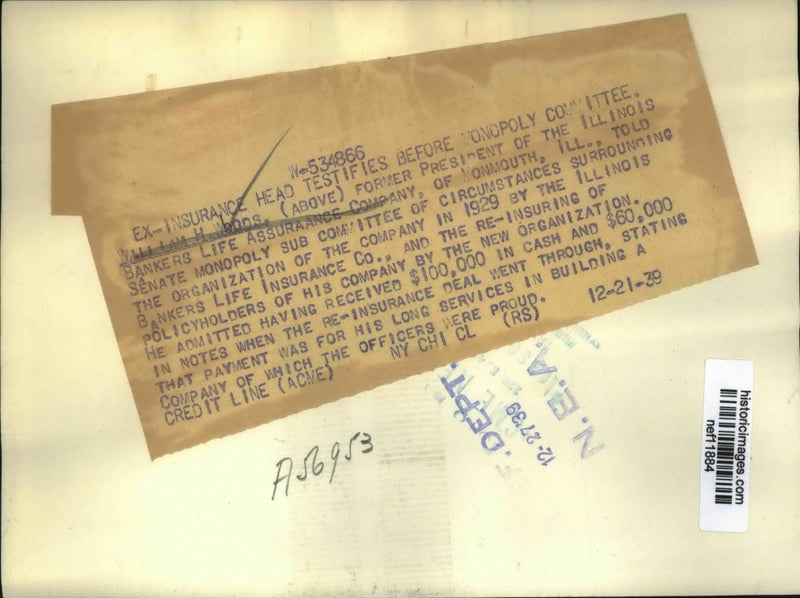 W-534866
EX-INSURANCE HEAD TESTIFIES BEFORE MONOPOLY COMMITTEE.
WILLIAM H. WOODS, (ABOVE) FORMER PRESIDENT OF THE ILLINOIS
BANKERS LIFE ASSURAANCE COMPANY, OF MONMOUTH, ILL., TOLD
SENATE MONOPOLY SUB COMMITTEE OF CIRCUMSTANCES SURROUNDING
THE ORGANIZATION OF THE COMPANY IN 1929 BY THE ILLINOIS
BANKERS LIFE INSURANCE CO., AND THE RE-INSURING OF
POLICYHOLDERS OF HIS COMPANY BY THE NEW ORGANIZATION.
HE ADMITTED HAVING RECEIVED $100,000 IN CASH AND $60,000
IN NOTES WHEN THE RE-INSURANCE DEAL WENT THROUGH, STATING
THAT PAYMENT WAS FOR HIS LONG SERVICES IN BUILDING A
COMPANY OF WHICH THE OFFICERS WERE PROUD.
CREDIT LINE (ACME) NY CHI CL (RS) 12-21-39
DEPT.
12-27-39
N.E.A.
A56953
historicimages.com
nef11884